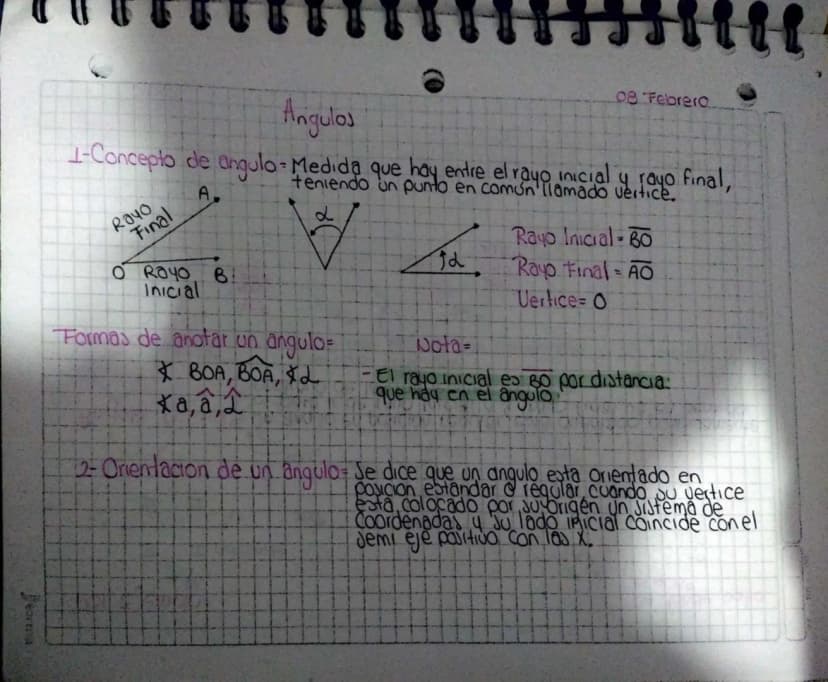 08 Febrero
Angulos
1-Concepto de angulo= Medida que hay entre el rayo inicial y rayo final,
teniendo un punto en común llamado vertice.
A
Rayo
Final
O Rayo B
Inicial
α
α
Rayo Inicial= B̅O̅
Rayo Final= A̅O̅
Vertice= O
Formas de anotar un angulo=
∡ BOA, BOA, ∡α
∡a, â, α̂
Nota=
- El rayo inicial es B̅O̅ por distancia
que hay en el ángulo.
2- Orientacion de un angulo= Se dice que un angulo esta orientado en
posicion estandar o regular, cuando su vertice
esta colocado por su origen un sistema de
coordenadas y su lado inicial coincide con el
semi eje positivo con las X.